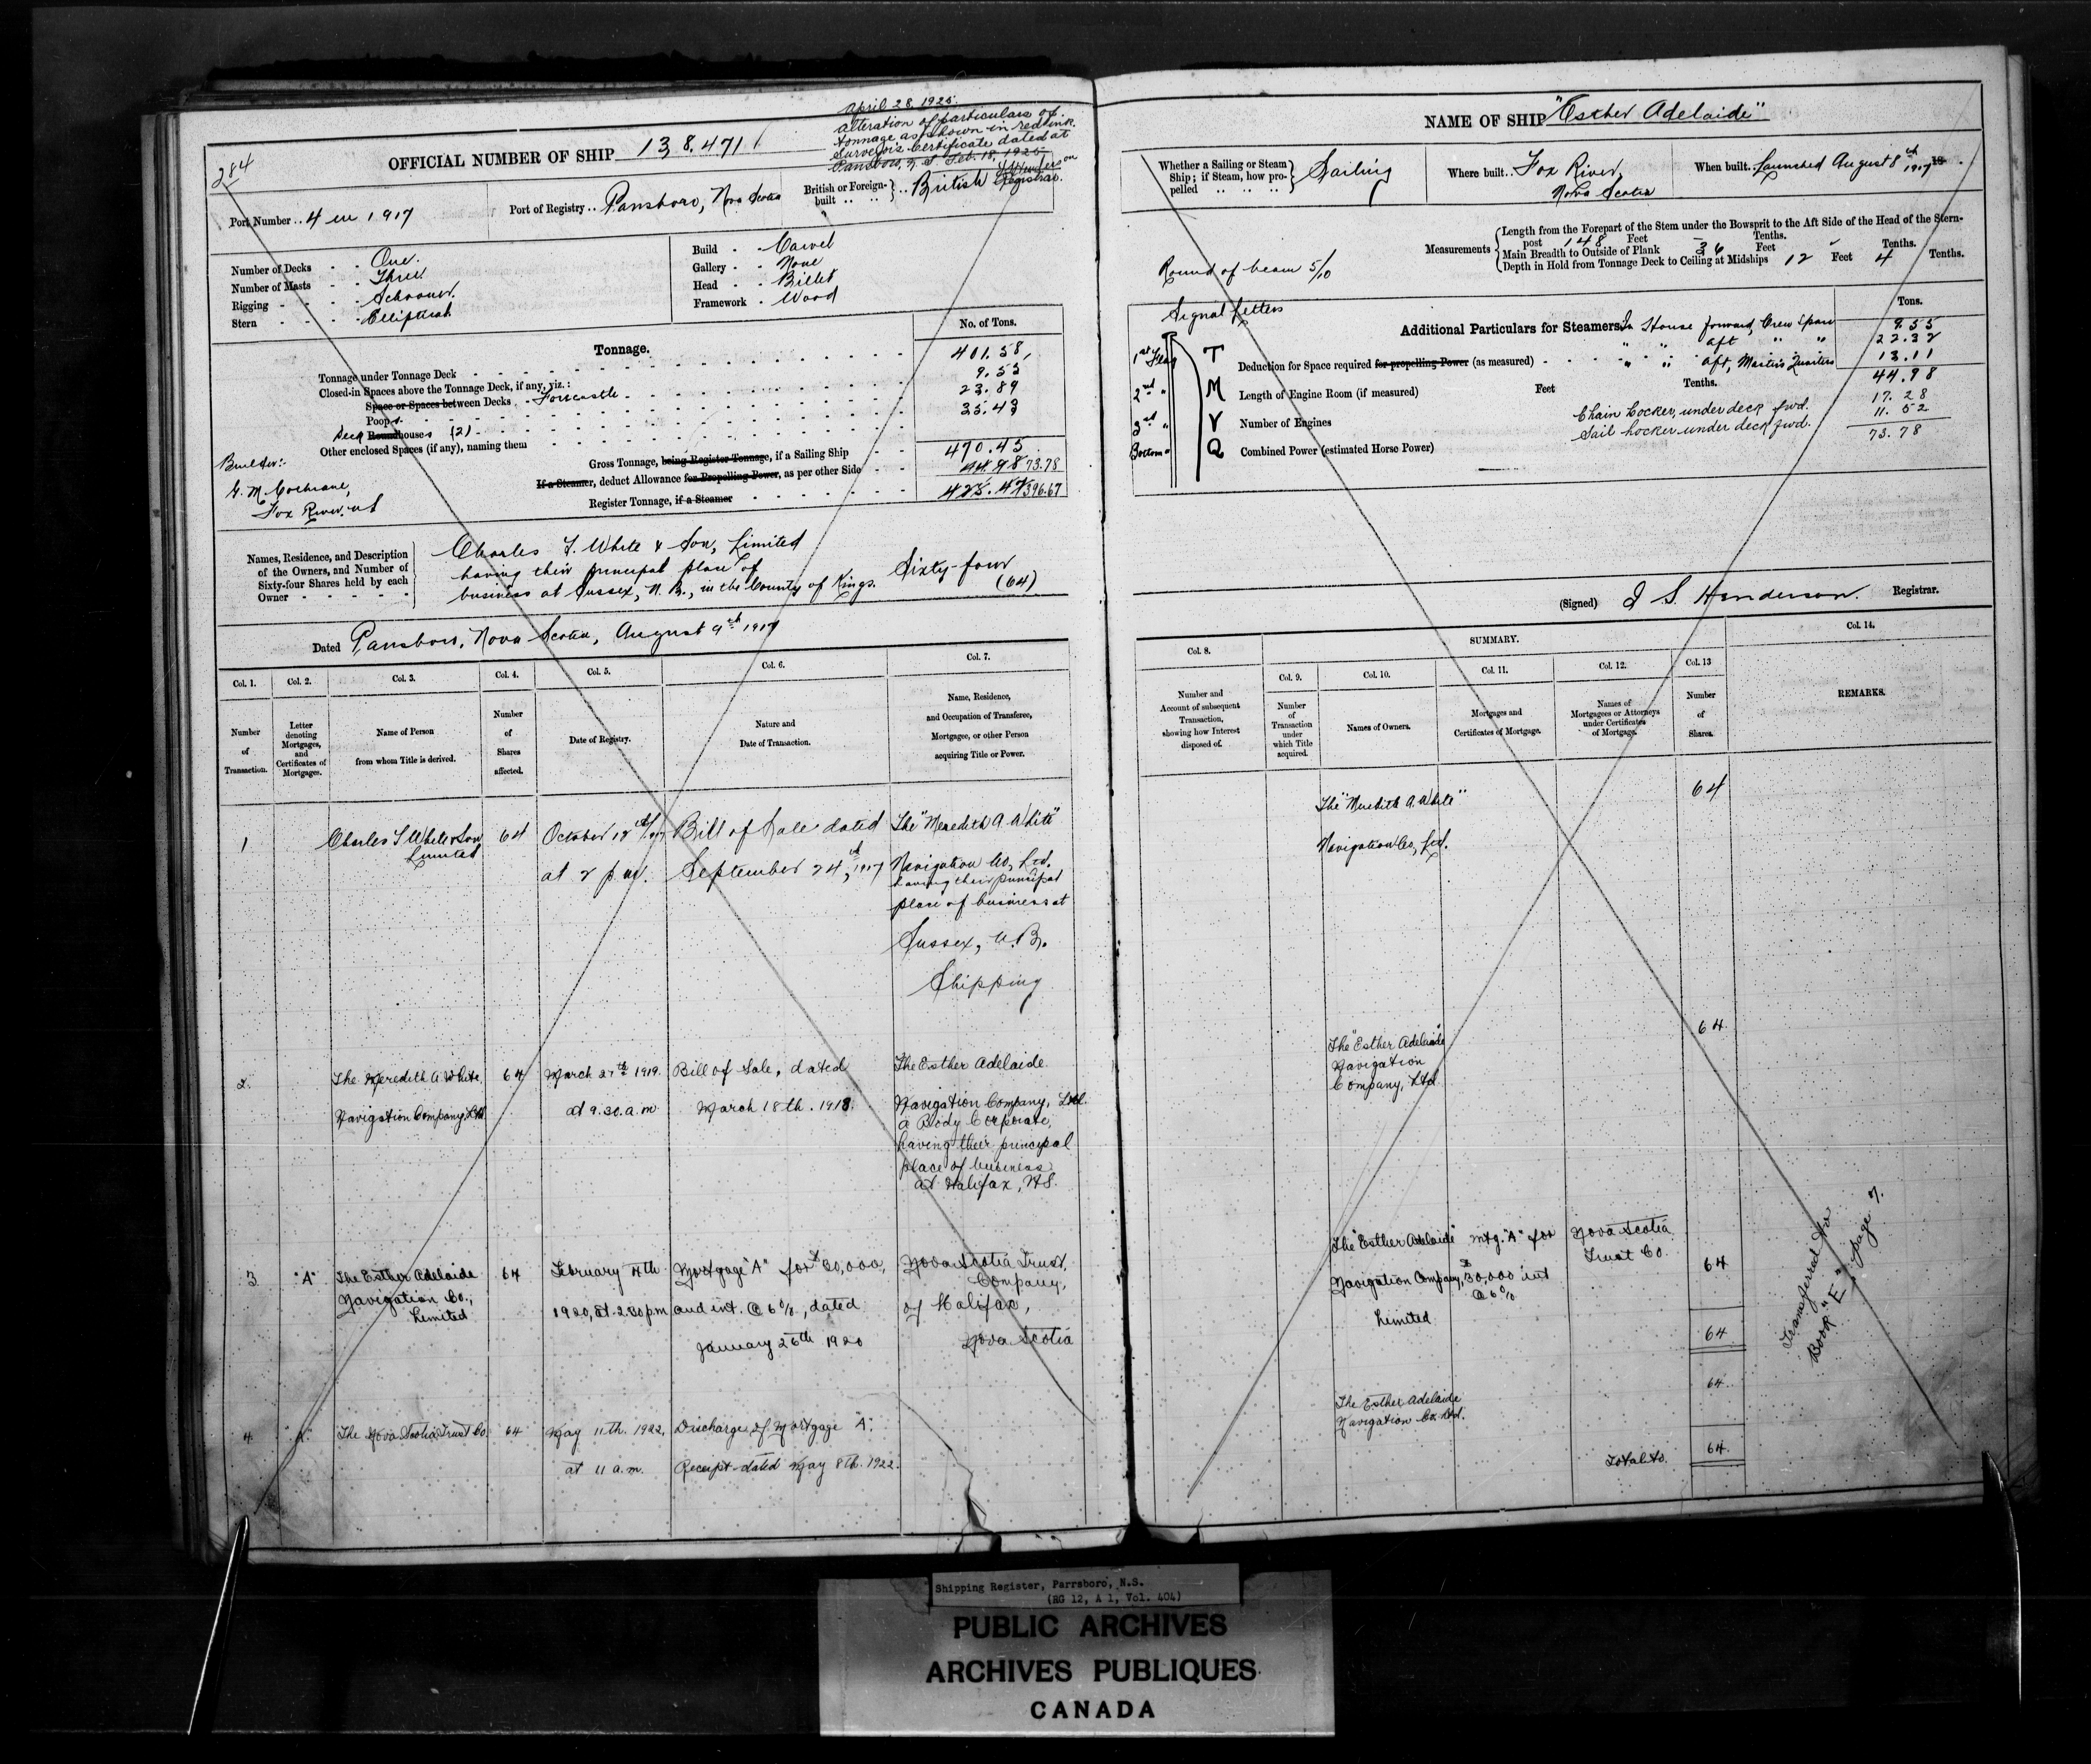 284
OFFICIAL NUMBER OF SHIP 138.471
April 28, 1925.
Alteration of particulars of
tonnage as shown in red ink.
Surveyor's Certificate dated at
Parrsboro, N.S Feb. 18, 1925
Registrar.
Port Number .. 4 in 1917
Port of Registry .. Parrsboro, Nova Scotia
British or Foreign-
built .. .. } .. British
Number of Decks - - One.
Number of Masts - - Three
Rigging - - - - Schooner.
Stern - - - - Elliptical
Build - - Carvel
Gallery - - None
Head - - Billet
Framework - Wood
Tonnage.
No. of Tons.
Tonnage under Tonnage Deck 401.58
Closed-in Spaces above the Tonnage Deck, if any, viz.: 9.55
Space or Spaces between Decks - Forecastle 23.89
Poop 35.43
Deck Roundhouses (2)
Other enclosed Spaces (if any), naming them
Gross Tonnage, being Register Tonnage, if a Sailing Ship 470.45
If a Steamer, deduct Allowance for Propelling Power, as per other Side 44.98 73.78
Register Tonnage, if a Steamer 425.47 396.67
Builder:-
G. M. Cochrane,
Fox River. NS
Names, Residence, and Description
of the Owners, and Number of
Sixty-four Shares held by each
Owner
Charles T. White & Son, Limited
having their principal place of
business at Sussex, N. B., in the County of Kings.
Sixty-four
(64)
Dated Parrsboro, Nova Scotia, August 9th 1917
Col. 1.
Number
of
Transaction.
Col. 2.
Letter
denoting
Mortgages,
and
Certificates of
Mortgages.
Col. 3.
Name of Person
from whom Title is derived.
Col. 4.
Number
of
Shares
affected.
Col. 5.
Date of Registry.
Col. 6.
Nature and
Date of Transaction.
Col. 7.
Name, Residence,
and Occupation of Transferee,
Mortgagee, or other Person
acquiring Title or Power.
1
Charles T White & Son
Limited
64
October 18th 1917
at 2 p.m.
Bill of Sale dated
September 24th, 1917
The "Meredith A White"
Navigation Co, Ltd.
having their principal
place of business at
Sussex, N.B.
Shipping
2
The Meredith A. White
Navigation Company, Ltd
64
March 27th 1919.
at 9.30. a.m
Bill of Sale, dated
March 18th. 1918.
The Esther Adelaide
Navigation Company, Ltd.
a Body Corporate,
having their principal
place of business
at Halifax, N.S.
3.
"A"
The Esther Adelaide
Navigation Co.,
Limited
64
February 4th
1920, at 2.30 p.m
Mortgage "A" for $30,000,
and int. @ 6%, dated
January 26th 1920
Nova Scotia Trust
Company,
of Halifax,
Nova Scotia
4.
"A"
The Nova Scotia Trust Co.
64
May 11th. 1922,
at 11 a.m.
Discharge of Mortgage "A".
Receipt dated May 8th. 1922.
NAME OF SHIP "Esther Adelaide"
Whether a Sailing or Steam
Ship; if Steam, how pro-
pelled .. .. .. } Sailing
Where built .. Fox River,
Nova Scotia
When built. Launched August 8th 1917 18 .
Round of beam 5/10
Measurements
Length from the Forepart of the Stem under the Bowsprit to the Aft Side of the Head of the Stern-
post 148 Feet - Tenths.
Main Breadth to Outside of Plank 36 Feet - Tenths.
Depth in Hold from Tonnage Deck to Ceiling at Midships 12 Feet 4 Tenths.
Signal Letters
1st Flag T
2nd " M
3rd " V
Bottom " Q
Tons.
Additional Particulars for Steamers. In House forward, Crew Space 9.55
" " aft " " 22.32
Deduction for Space required for propelling Power (as measured) " " aft, Master's Quarters 13.11
44.98
Length of Engine Room (if measured) Feet Tenths.
Number of Engines
Chain Locker, under deck fwd. 17.28
Sail Locker under deck fwd. 11.52
73.78
Combined Power (estimated Horse Power)
(Signed) J S. Henderson. Registrar.
Col. 8.
Number and
Account of subsequent
Transaction,
showing how Interest
disposed of.
SUMMARY.
Col. 9.
Number
of
Transaction
under
which Title
acquired.
Col. 10.
Names of Owners.
Col. 11.
Mortgages and
Certificates of Mortgage.
Col. 12.
Names of
Mortgagees or Attorneys
under Certificates
of Mortgage.
Col. 13
Number
of
Shares.
Col. 14.
REMARKS.
The "Meredith A. White"
Navigation Co, Ltd.
64
The "Esther Adelaide"
Navigation
Company, Ltd
64
The "Esther Adelaide"
Navigation Company,
Limited
Mtg. "A" for
$30,000 int
@ 6%
Nova Scotia
Trust Co.
64
64
The Esther Adelaide
Navigation Co. Ltd.
64
Total
64
Transferred to
Book "E", page 7.
Shipping Register, Parrsboro, N.S.
(RG 12, A 1, Vol. 404)
PUBLIC ARCHIVES
ARCHIVES PUBLIQUES
CANADA